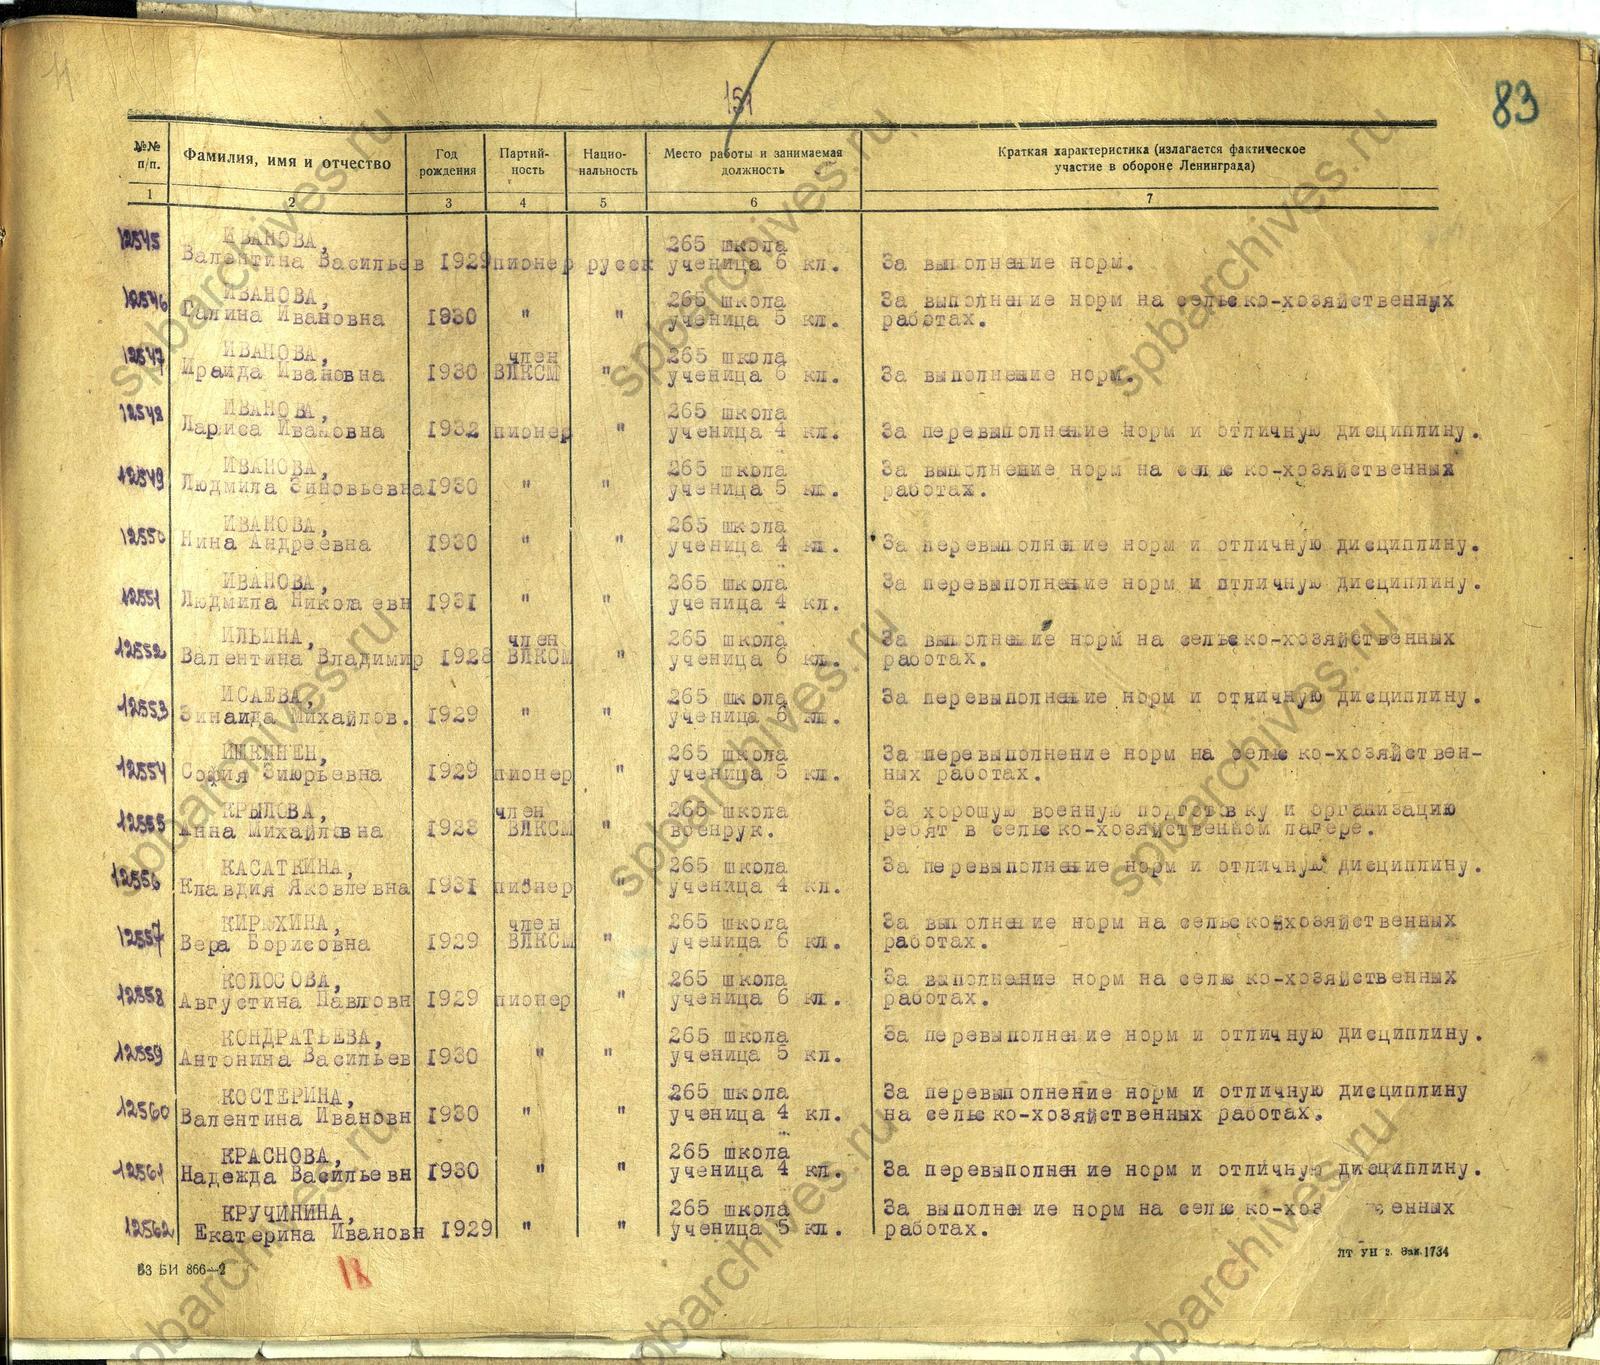 151
83
№№ п/п. Фамилия, имя и отчество Год рождения Партий-ность Нацио-нальность Место работы и занимаемая должность Краткая характеристика (излагается фактическое участие в обороне Ленинграда)
1 2 3 4 5 6 7
12545 ИВАНОВА, 265 школа
Валентина Васильев 1929 пионер русск ученица 6 кл. За выполнение норм.
12546 ИВАНОВА, 265 школа За выполнение норм на сельско-хозяйственных
Галина Ивановна 1930 " " ученица 5 кл. работах.
12547 ИВАНОВА, член 265 школа
Ираида Ивановна 1930 ВЛКСМ " ученица 6 кл. За выполнение норм.
12548 ИВАНОВА, 265 школа
Лариса Ивановна 1932 пионер " ученица 4 кл. За перевыполнение норм и отличную дисциплину.
12549 ИВАНОВА, 265 школа За выполнение норм на сельско-хозяйственных
Людмила Зиновьевна 1930 " " ученица 5 кл. работах.
12550 ИВАНОВА, 265 школа
Нина Андреевна 1930 " " ученица 4 кл. За перевыполнение норм и отличную дисциплину.
12551 ИВАНОВА, 265 школа За перевыполнение норм и отличную дисциплину.
Людмила Николаевн 1931 " " ученица 4 кл.
12552 ИЛЬИНА, член 265 школа За выполнение норм на сельско-хозяйственных
Валентина Владимир 1928 ВЛКСМ " ученица 6 кл. работах.
12553 ИСАЕВА, 265 школа За перевыполнение норм и отличную дисциплину.
Зинаида Михайлов. 1929 " " ученица 6 кл.
12554 265 школа За перевыполнение норм на сельско-хозяйствен-
София 1929 пионер " ученица 5 кл. ных работах.
12555 КРЫЛОВА, член 265 школа За хорошую военную подготовку и организацию
Анна Михайловна 1923 ВЛКСМ " военрук. ребят в сельско-хозяйственном лагере.
12556 КАСАТКИНА, 265 школа За перевыполнение норм и отличную дисциплину.
Клавдия Яковлевна 1931 пионер " ученица 4 кл.
12557 КИРЮХИНА, член 265 школа За выполнение норм на сельско-хозяйственных
Вера Борисовна 1929 ВЛКСМ " ученица 6 кл. работах.
12558 КОЛОСОВА, 265 школа За выполнение норм на сельско-хозяйственных
Августина Павловн 1929 пионер " ученица 6 кл. работах.
12559 КОНДРАТЬЕВА, 265 школа За перевыполнение норм и отличную дисциплину.
Антонина Васильев 1930 " " ученица 5 кл.
12560 КОСТЕРИНА, 265 школа За перевыполнение норм и отличную дисциплину
Валентина Ивановн 1930 " " ученица 4 кл. на сельско-хозяйственных работах.
12561 КРАСНОВА, 265 школа
Надежда Васильевн 1930 " " ученица 4 кл. За перевыполнение норм и отличную дисциплину.
12562 КРУЧИНИНА, 265 школа За выполнение норм на сельско-хоз енных
Екатерина Ивановн 1929 " " ученица 5 кл. работах.
ВЗ БИ 866—2
18
ЛТ УН з. Зак. 1734
spbarchives.ru